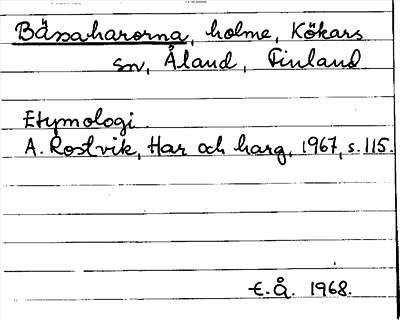 Bässaharorna, holme, Kökars
sn, Åland, Finland
Etymologi
A. Rostvik, Har och harg, 1967, s. 115.
E.Å. 1968.